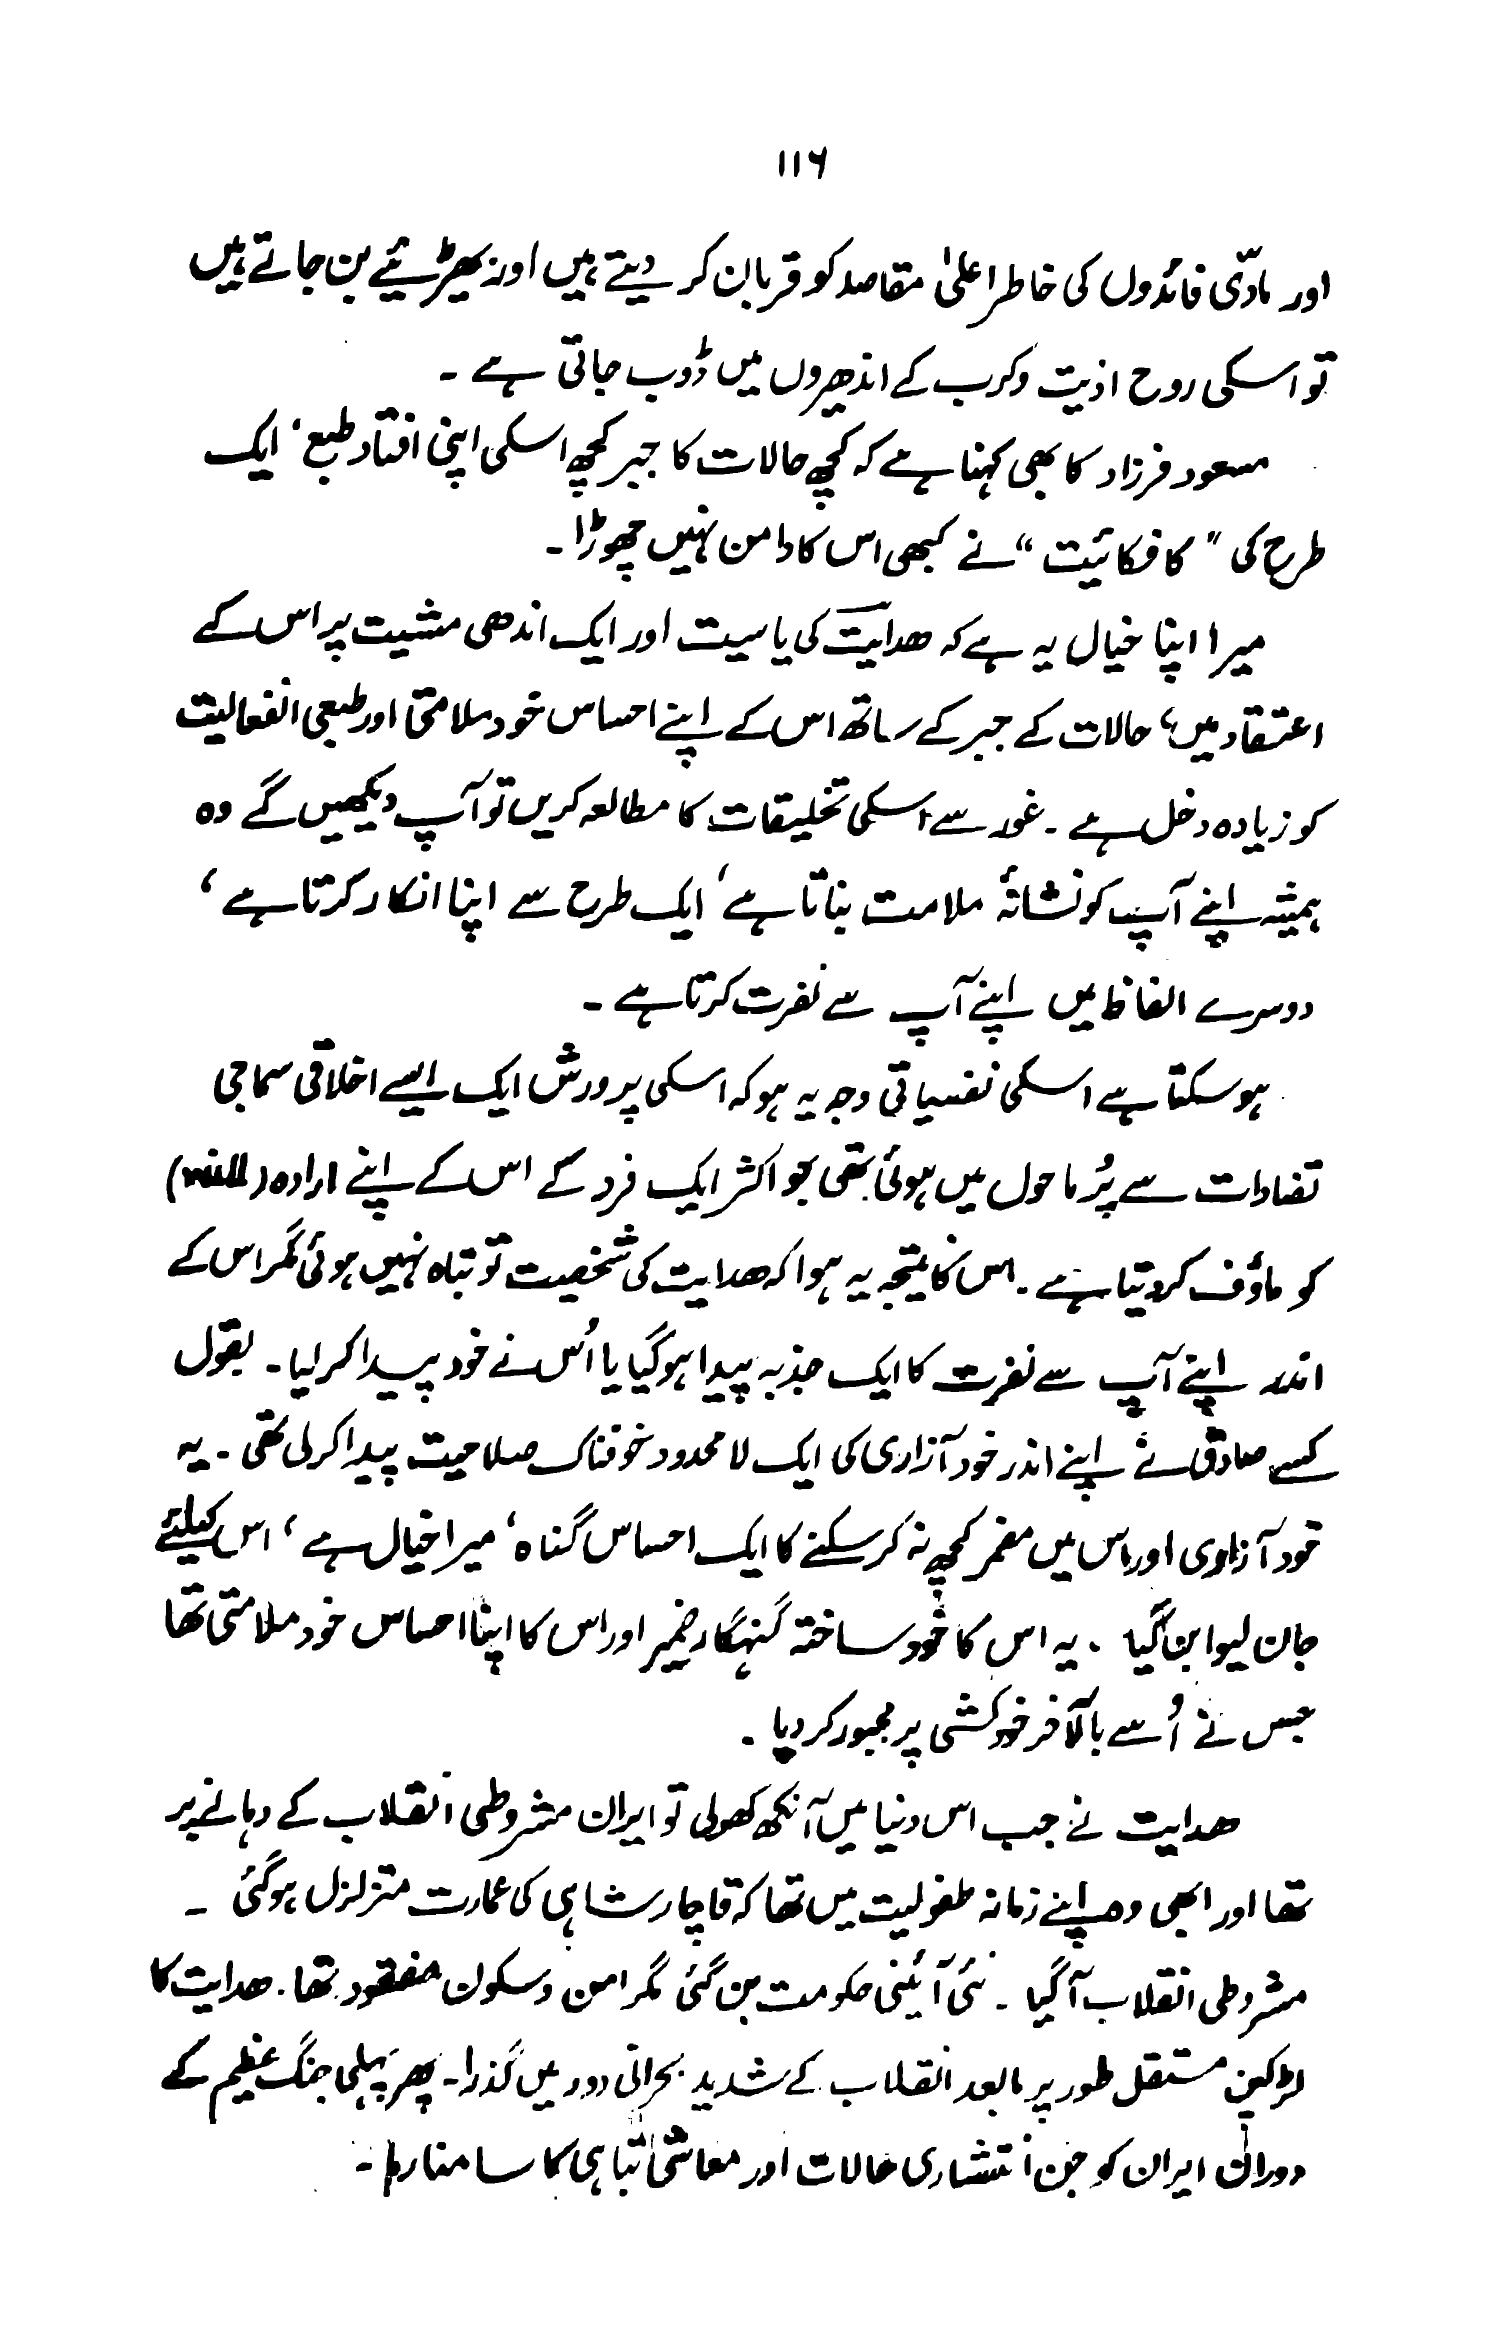 ۱۱۶
اور مادّی فائدوں کی خاطر اعلیٰ مقاصد کو قربان کر دیتے ہیں اور بھیڑئیے بن جاتے ہیں
تو اسکی روح اذیت وکرب کے اندھیروں میں ڈوب جاتی ہے ۔
مسعود فرزاد کا بھی کہنا ہے کہ کچھ حالات کا جبر کچھ اسکی اپنی افتاد طبع، ایک
طرح کی "کافکائیت" نے کبھی اس کا دامن نہیں چھوڑا۔
میرا اپنا خیال یہ ہے کہ ھدایت کی یاسیت اور ایک اندھی مشیت پر اس کے
اعتقاد میں، حالات کے جبر کے ساتھ اس کے اپنے احساس خود ملامتی اور طبعی انفعالیت
کو زیادہ دخل ہے ۔ غور سے اسکی تخلیقات کا مطالعہ کریں تو آپ دیکھیں گے وہ
ہمیشہ اپنے آپ کو نشانۂ ملامت بناتا ہے، ایک طرح سے اپنا انکار کرتا ہے،
دوسرے الفاظ میں اپنے آپ سے نفرت کرتا ہے ۔
ہو سکتا ہے اسکی نفسیاتی وجہ یہ ہو کہ اسکی پرورش ایک ایسے اخلاقی سماجی
تضادات سے پُر ماحول میں ہوئی تھی جو اکثر ایک فرد کے اس کے اپنے ارادہ (will)
کو ماؤف کر دیتا ہے ۔ اس کا نتیجہ یہ ہوا کہ ھدایت کی شخصیت تو تباہ نہیں ہوئی مگر اس کے
اندر اپنے آپ سے نفرت کا ایک جذبہ پیدا ہو گیا یا اُس نے خود پیدا کر لیا ۔ بقول
کسے صادق نے اپنے اندر خود آزاری کی ایک لا محدود خوفناک صلاحیت پیدا کر لی تھی ۔ یہ
خود آزاری اور اس میں مضمر کچھ نہ کر سکنے کا ایک احساس گناہ، میرا خیال ہے، اس کیلئے
جان لیوا بن گیا ۔ یہ اس کا خود ساختہ گنہگار ضمیر اور اس کا اپنا احساس خود ملامتی تھا
جس نے اُسے بالآخر خودکشی پر مجبور کر دیا ۔
ھدایت نے جب اس دنیا میں آنکھ کھولی تو ایران مشروطی انقلاب کے دہانے پر
تھا اور ابھی وہ اپنے زمانہ طفولیت میں تھا کہ قاچار شاہی کی عمارت متزلزل ہو گئی ۔
مشروطی انقلاب آ گیا ۔ نئی آئینی حکومت بن گئی مگر امن وسکون مفقود تھا ۔ ھدایت کا
لڑکپن مستقل طور پر مابعد انقلاب کے شدید بحرانی دور میں گذرا ۔ پھر پہلی جنگ عظیم کے
دوران ایران کو جن انتشاری حالات اور معاشی تباہی کا سامنا رہا ۔